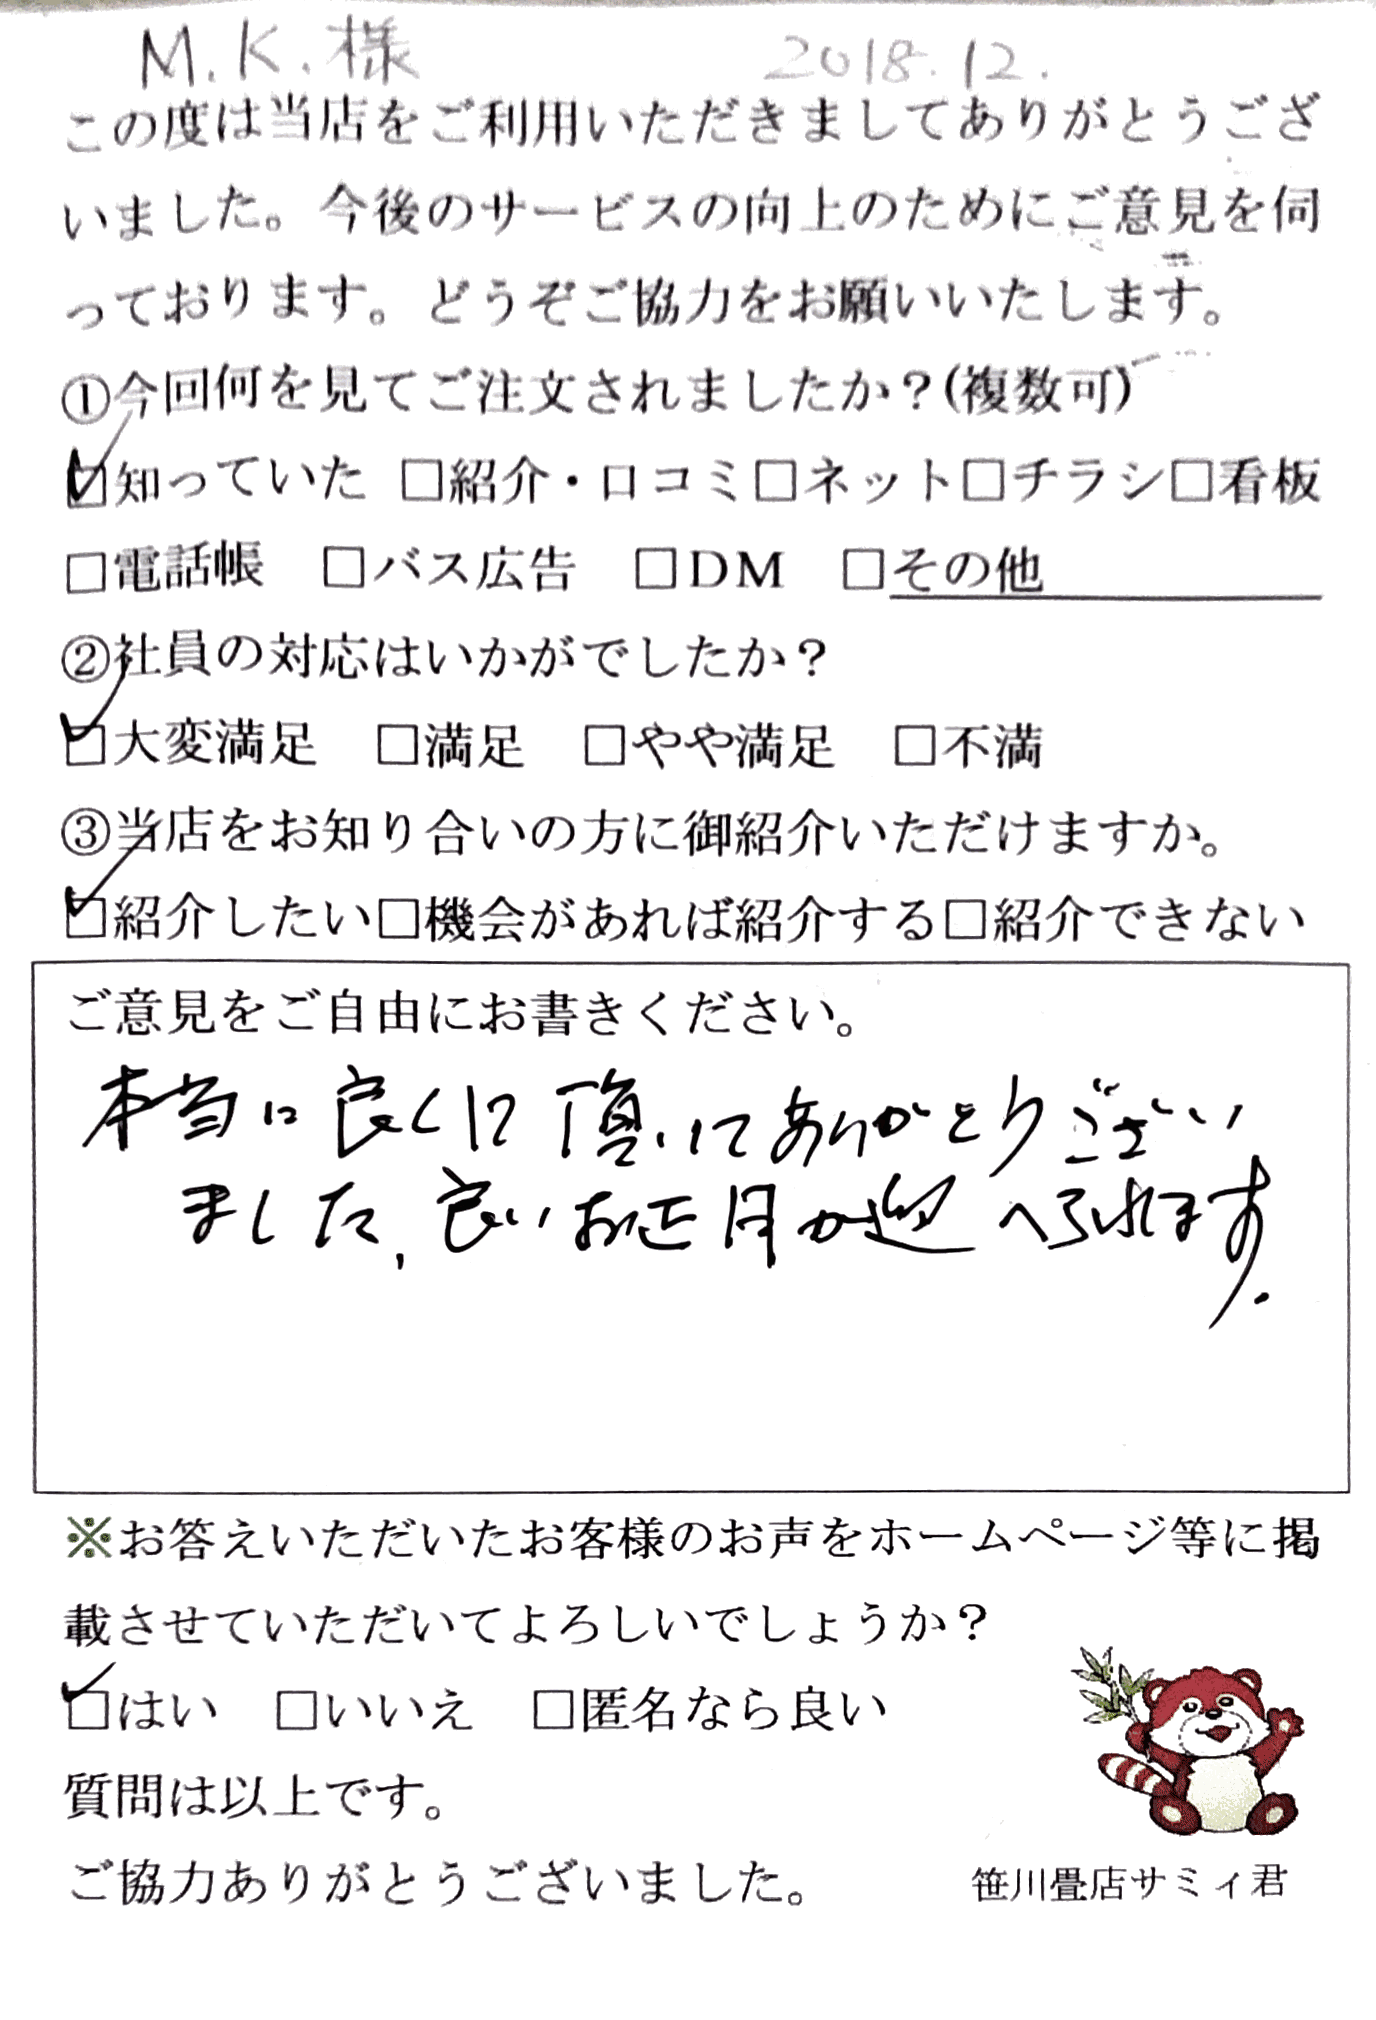 M.K.様 2018.12.
この度は当店をご利用いただきましてありがとうござ
いました。今後のサービスの向上のためにご意見を伺
っております。どうぞご協力をお願いいたします。
①今回何を見てご注文されましたか？(複数可)
☑知っていた □紹介・口コミ□ネット□チラシ□看板
□電話帳 □バス広告 □DM □その他
②社員の対応はいかがでしたか？
☑大変満足 □満足 □やや満足 □不満
③当店をお知り合いの方に御紹介いただけますか。
☑紹介したい□機会があれば紹介する□紹介できない
ご意見をご自由にお書きください。
本当に良くして頂いてありがとうござい
ました、良いお正月が迎へられます.
※お答えいただいたお客様のお声をホームページ等に掲
載させていただいてよろしいでしょうか？
☑はい □いいえ □匿名なら良い
質問は以上です。
ご協力ありがとうございました。
笹川畳店サミィ君